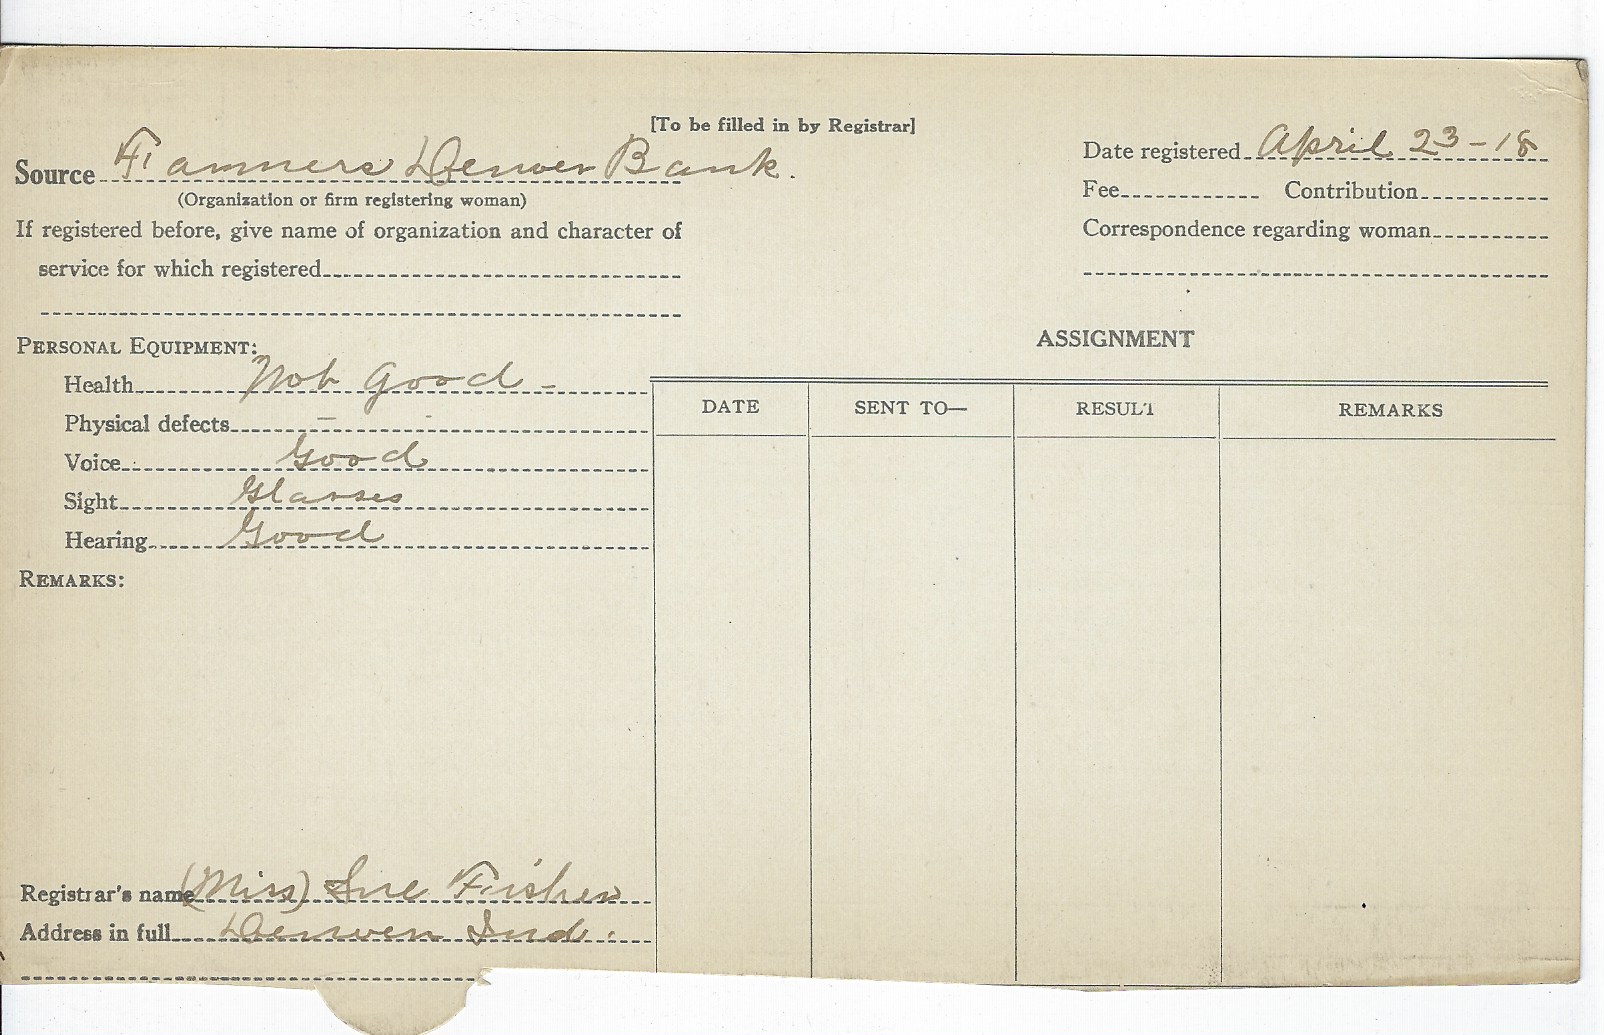 [To be filled in by Registrar]
Source Farmers Denver Bank.
(Organization or firm registering woman)
If registered before, give name of organization and character of
service for which registered
Date registered April 23-18
Fee Contribution
Correspondence regarding woman
PERSONAL EQUIPMENT:
Health Not Good -
Physical defects -
Voice Good
Sight Glasses
Hearing Good
REMARKS:
ASSIGNMENT
DATE SENT TO— RESULT REMARKS
Registrar's name (Miss) Sue Fisher
Address in full Denver Ind.